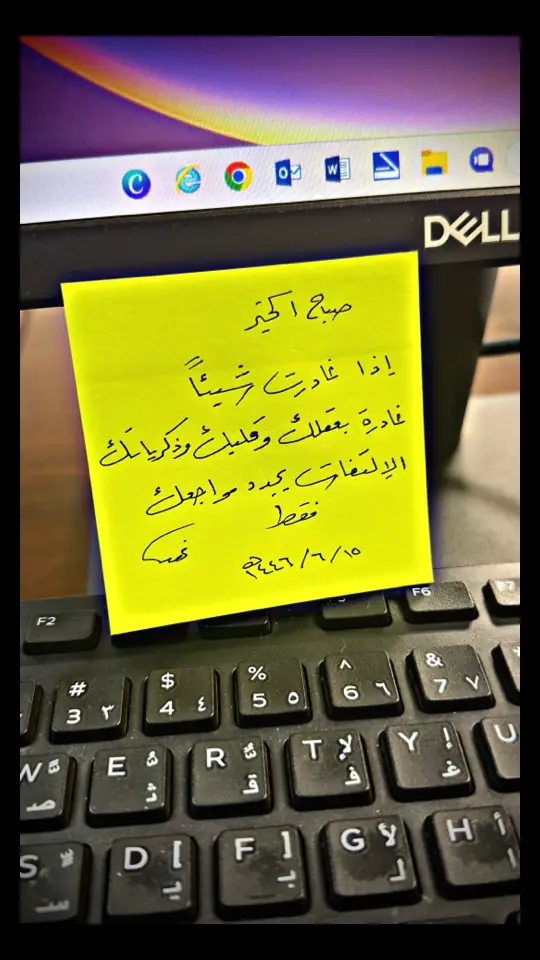 DELL
صباح الخير
إذا غادرت شيئاً
غادرة بعقلك وقلبك وذكرياتك
الإلتفات يجدد مواجعك
فقط
١٤٤٦/٦/١٥هـ
F2 F6 F7
# 3 ٣ $ 4 ٤ % 5 ٥ ^ 6 ٦ & 7 ٧
W ص E ث R ق T لإ ف Y إ غ U
S س D ] ي F [ ب G لأ ل H أ ا